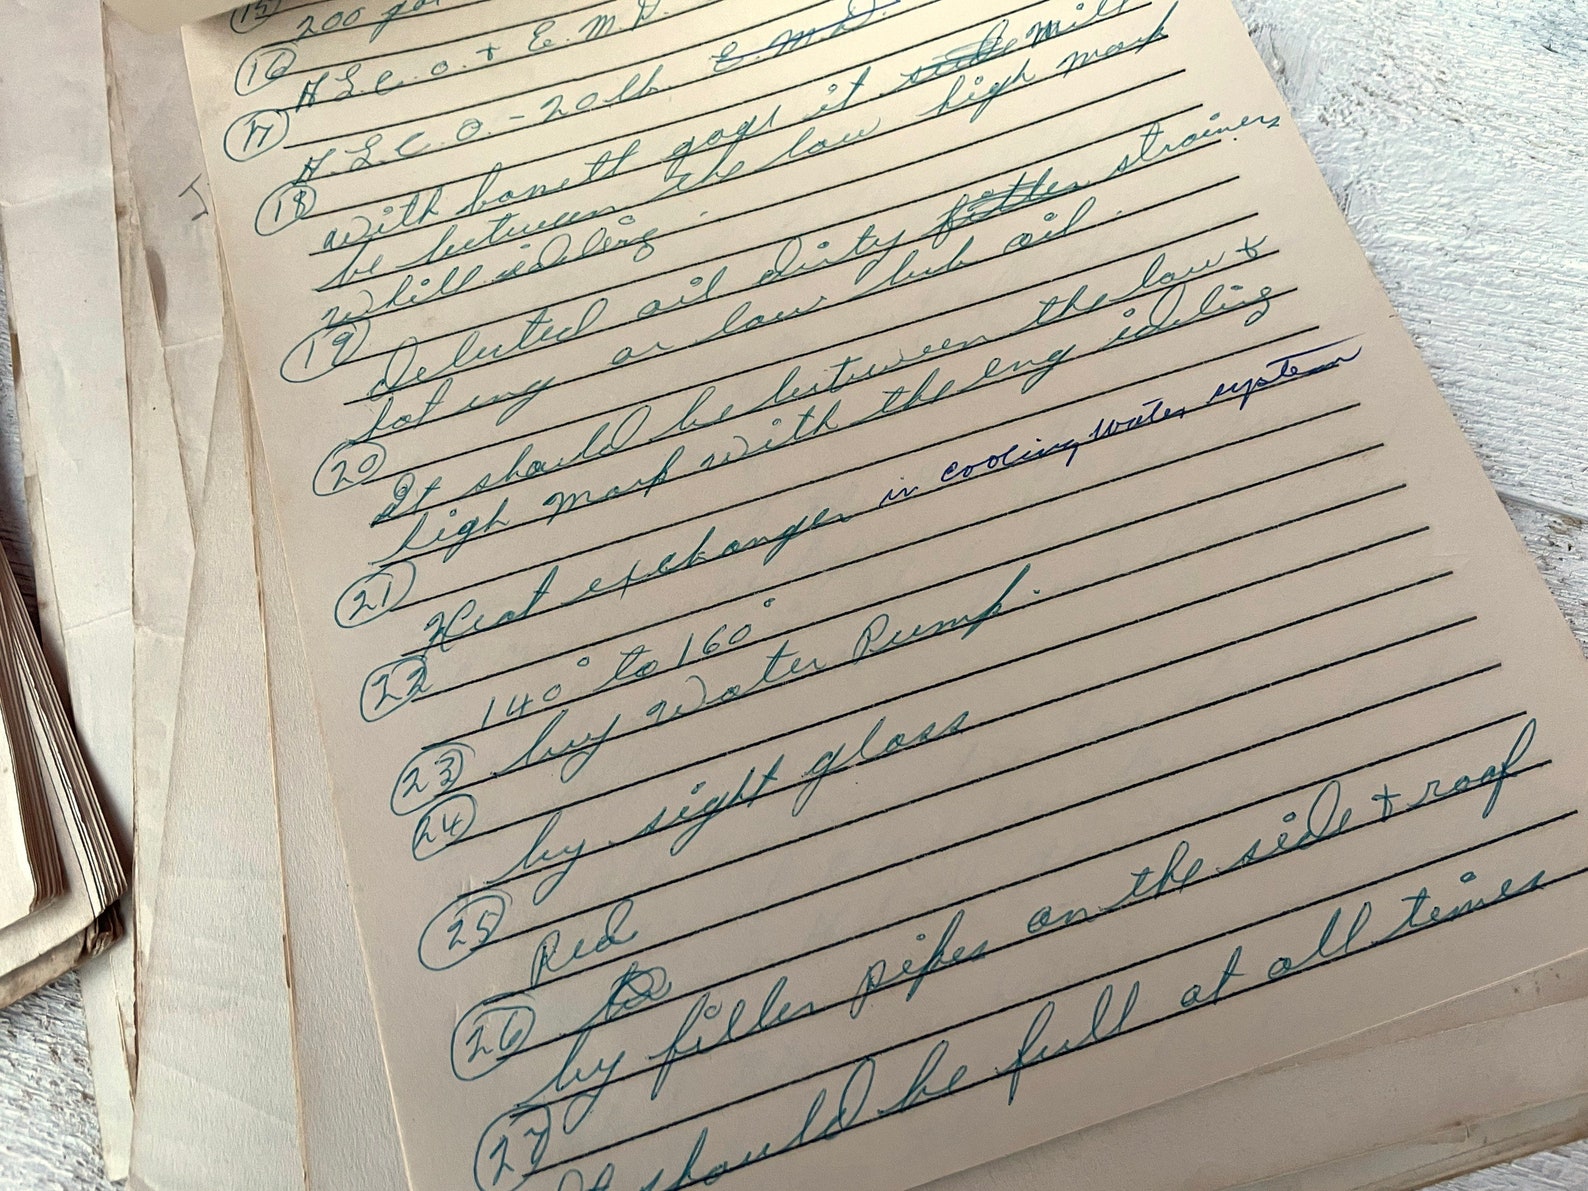 (15)
200 gal
(16)
H.L.C.O. + E.M.D.
(17)
H.L.C.O. - 20 lb. E.M.D.
(18)
With bonett gage it milk
be between the low high mark
whill ideling.
(19)
deluted oil dirty filter strainers
hot eng or low lub oil.
(20)
It should be between the low +
high mark with the eng ideling
(21)
Heat exchanger in cooling water system
(22)
140° to 160°
(23) by water Pump.
(24)
by sight glass
(25)
Red
(26) to
by filler pipes on the side + roof
(27)
It should be full at all times